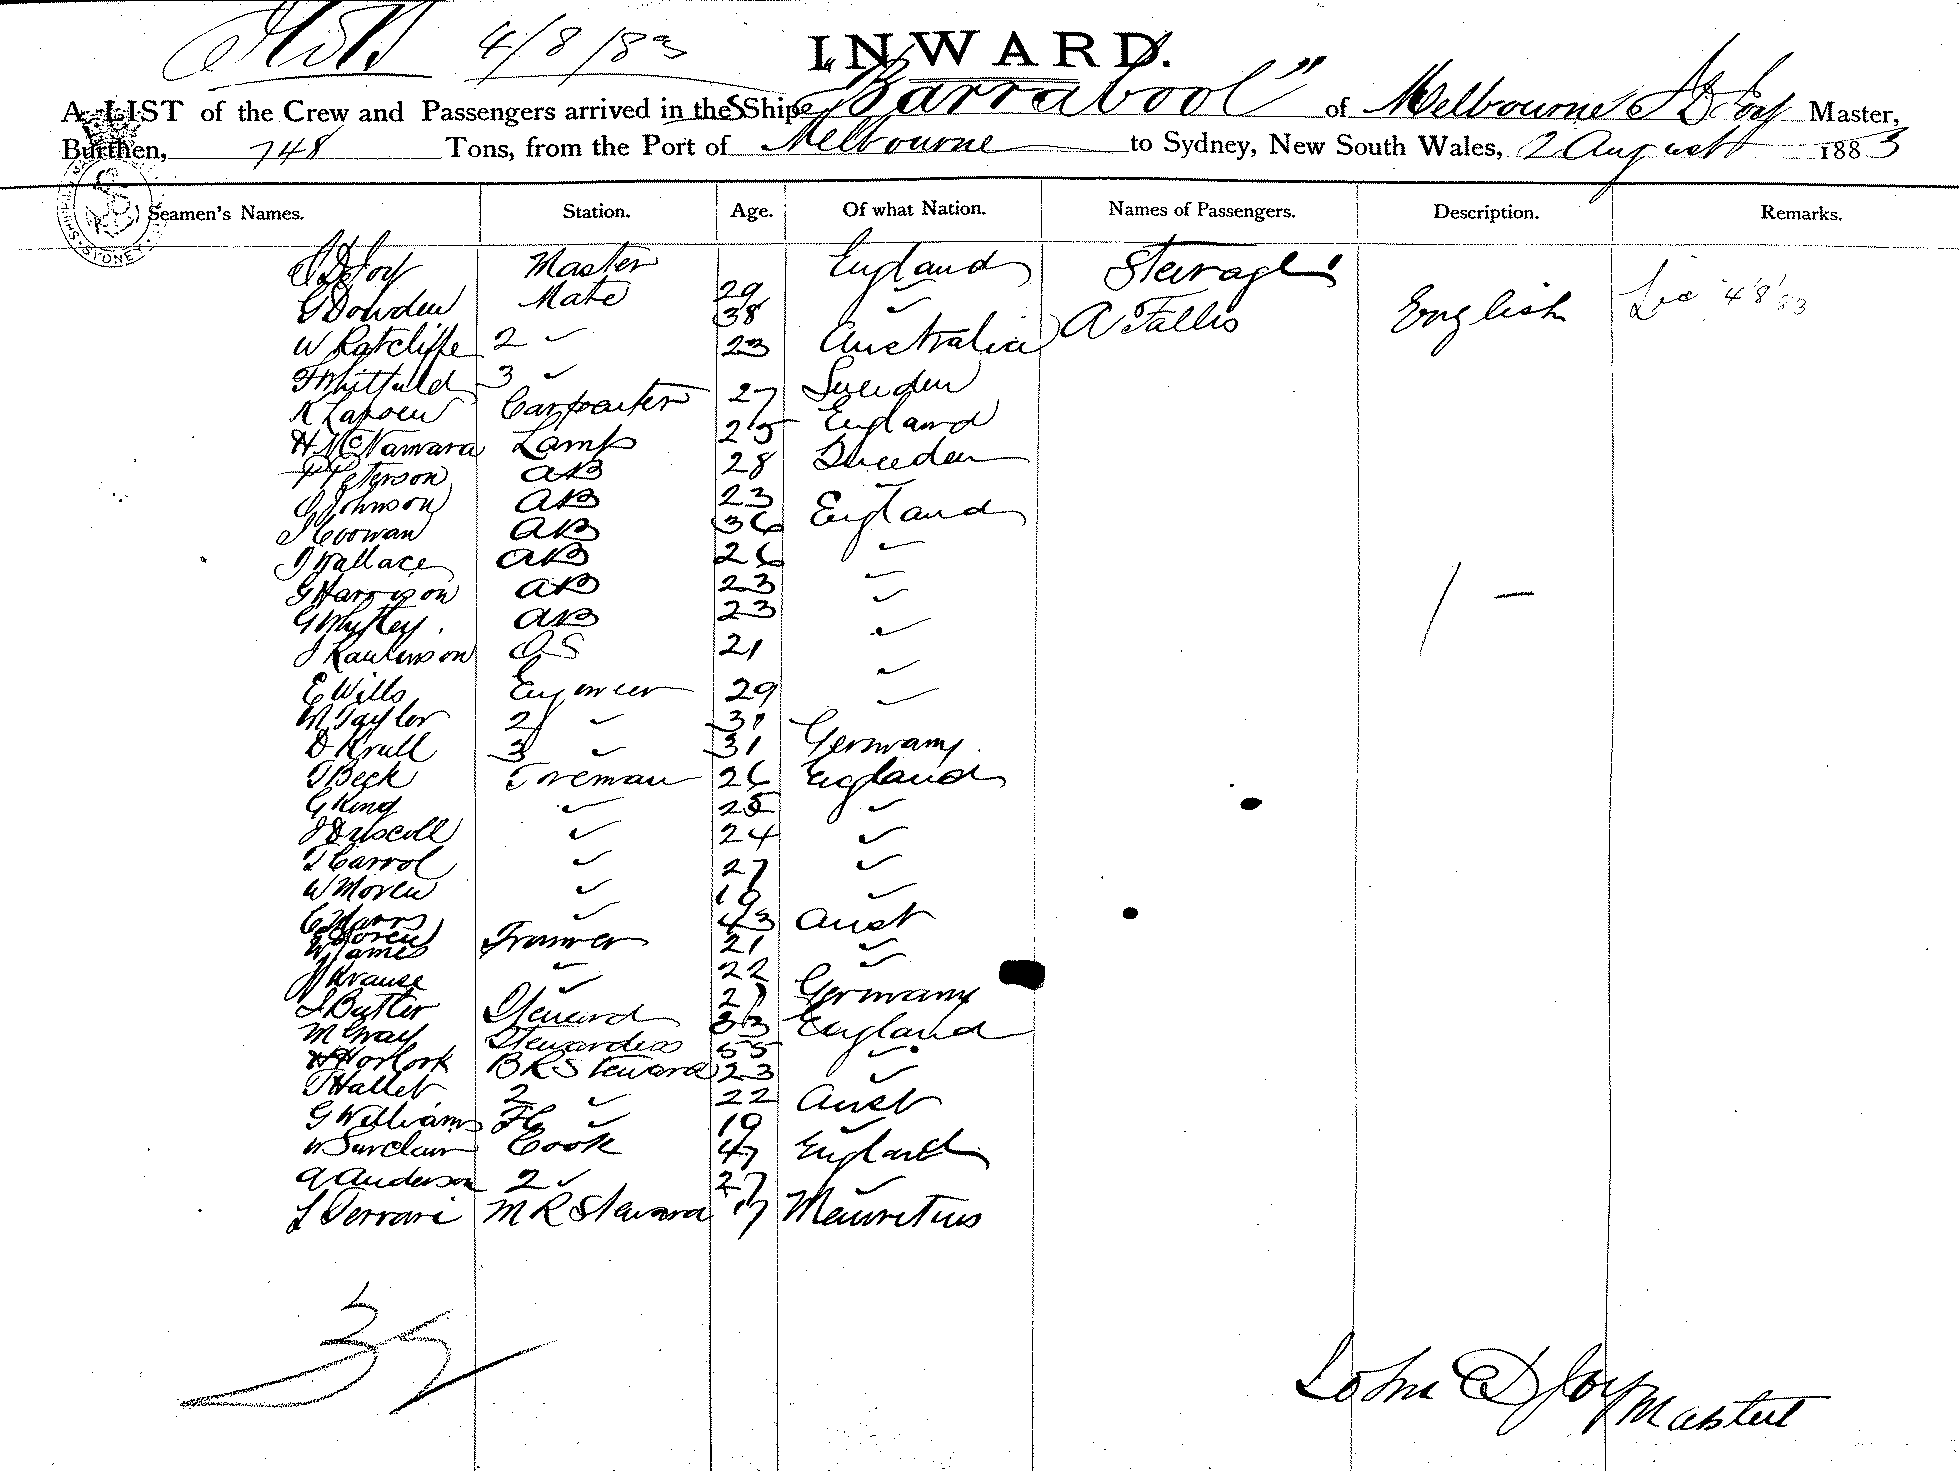 4/8/83
INWARD.
A LIST of the Crew and Passengers arrived in the SShip "Barrabool" of Melbourne J D Joy Master,
Burthen, 748 Tons, from the Port of Melbourne to Sydney, New South Wales, 2 August 1883
Seamen's Names. Station. Age. Of what Nation. Names of Passengers. Description. Remarks.
J D Joy Master England Steerage
G Dowden Mate 29 ✓ A Fallis English 4/8/83
38
W Ratcliffe 2 ✓ 23 Australia
J Whitfield 3 ✓
K Larsen Carpenter 27 Sweden
H McNamara Lamps 25 England
P Peterson AB 28 Sweden
J Johnson AB 23 ✓
J Coowan AB 36 England
J Wallace AB 26 ✓
G Harrison AB 23 ✓
G Whytley. AB 23 ✓
J Rawlinson OS 21 ✓
E Wills Engineer 29 ✓
W Taylor 2 ✓ 31 ✓
D Krull 3 ✓ 31 Germany.
J Beck Foreman 26 England
G King ✓ 25 ✓
J Driscoll ✓ 24 ✓
T Carrol ✓ 27 ✓
W Moren ✓ 19 ✓
C Harrs ✓ 43 Aust
Moren Trimmer 21 ✓
W James ✓ 22 ✓
J Krause ✓ 27 Germany
J Butler Steward 33 England
M Gray Stewardess 55 ✓
H Horlock B R Steward 23 ✓
T Hallet 2 ✓ 22 Aust
G Williams ✓ 19 ✓
W Sinclair Cook 47 England
A Anderson 2 ✓ 27 ✓
L Ferrari M R Steward 17 Mauritius
1 —
32
John D Joy Master